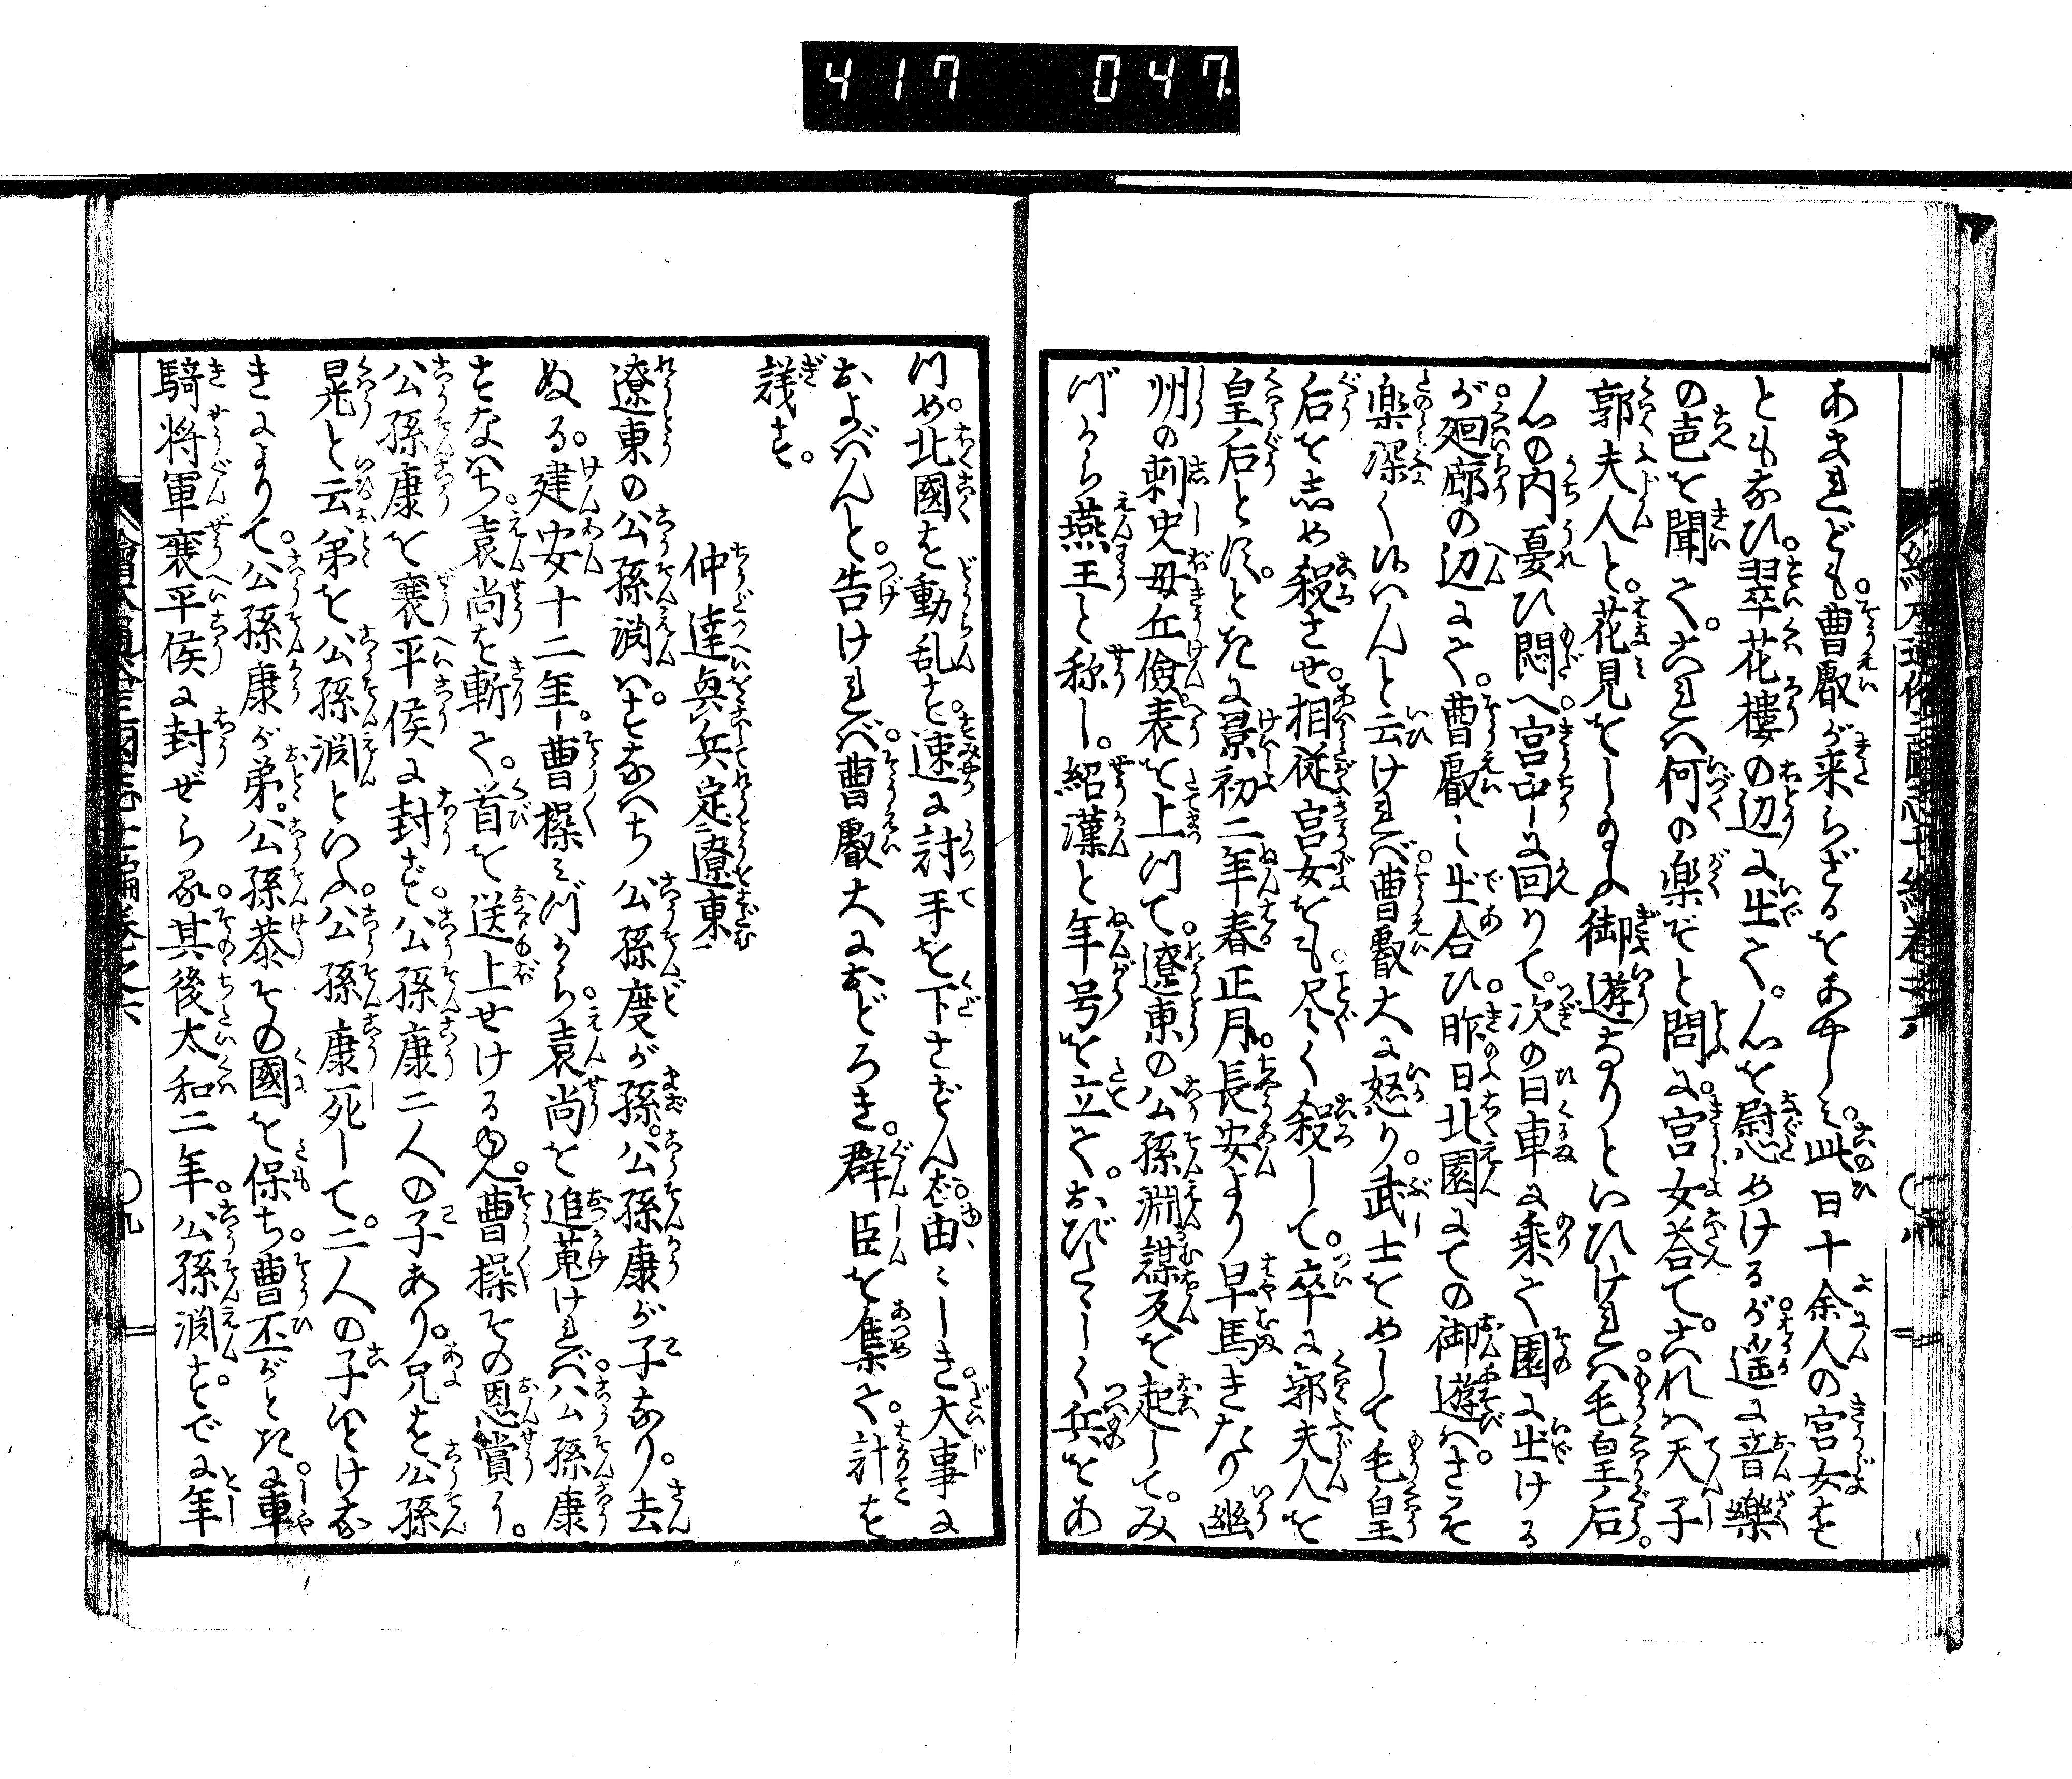 417 047
あまれども。曹叡が来らざるをあやしミ。此日十余人の宮女を
ともなひ。翠花樓の辺に出て。心を慰めけるが。遥に音樂
の声を聞て。これハ何の楽ぞと問に。宮女荅て。これハ天子
郭夫人と。花見をし給ふ御遊なりといひければ。毛皇后。
心の内憂ひ悶へ。宮中に回りて。次の日車に乗て園に出ける
が。廻廊の辺にて。曹叡に出合ひ。昨日北園にての御遊ハ。さこそ
楽深く候ハんと云ければ。曹叡大に怒り。武士をめして毛皇
后をしめ殺させ。相従宮女をも尽く殺して。卒に郭夫人を
皇后とす。ときに景初二年春正月。長安より早馬きたり。幽
州の刺史毋丘儉。表を上つて。遼東の公孫淵謀反を起して。み
づから燕王と称し。紹漢と年号を立て。おびたゝしく兵をあ
つめ。北國を動乱す。速に討手を下さずんば。由ゝしき大事に
およばんと。告ければ。曹叡大におどろき。群臣を集て。計を
議す。
仲達興兵定遼東
遼東の公孫淵ハ。すなハち公孫度が孫。公孫康が子なり。去
ぬる。建安十二年。曹操ミづから。袁尚を追蒐ければ。公孫康
すなハち。袁尚を斬て。首を送上せける故。曹操その恩賞に。
公孫康を襄平侯に封ず。公孫康二人の子あり。兄を公孫
晃と云弟を公孫淵といふ。公孫康死して。二人の子をさけな
きによりて。公孫康が弟。公孫恭その國を保ち。曹丕がときに。車
騎将軍襄平侯に封ぜらる。其後太和二年。公孫淵。すでに年